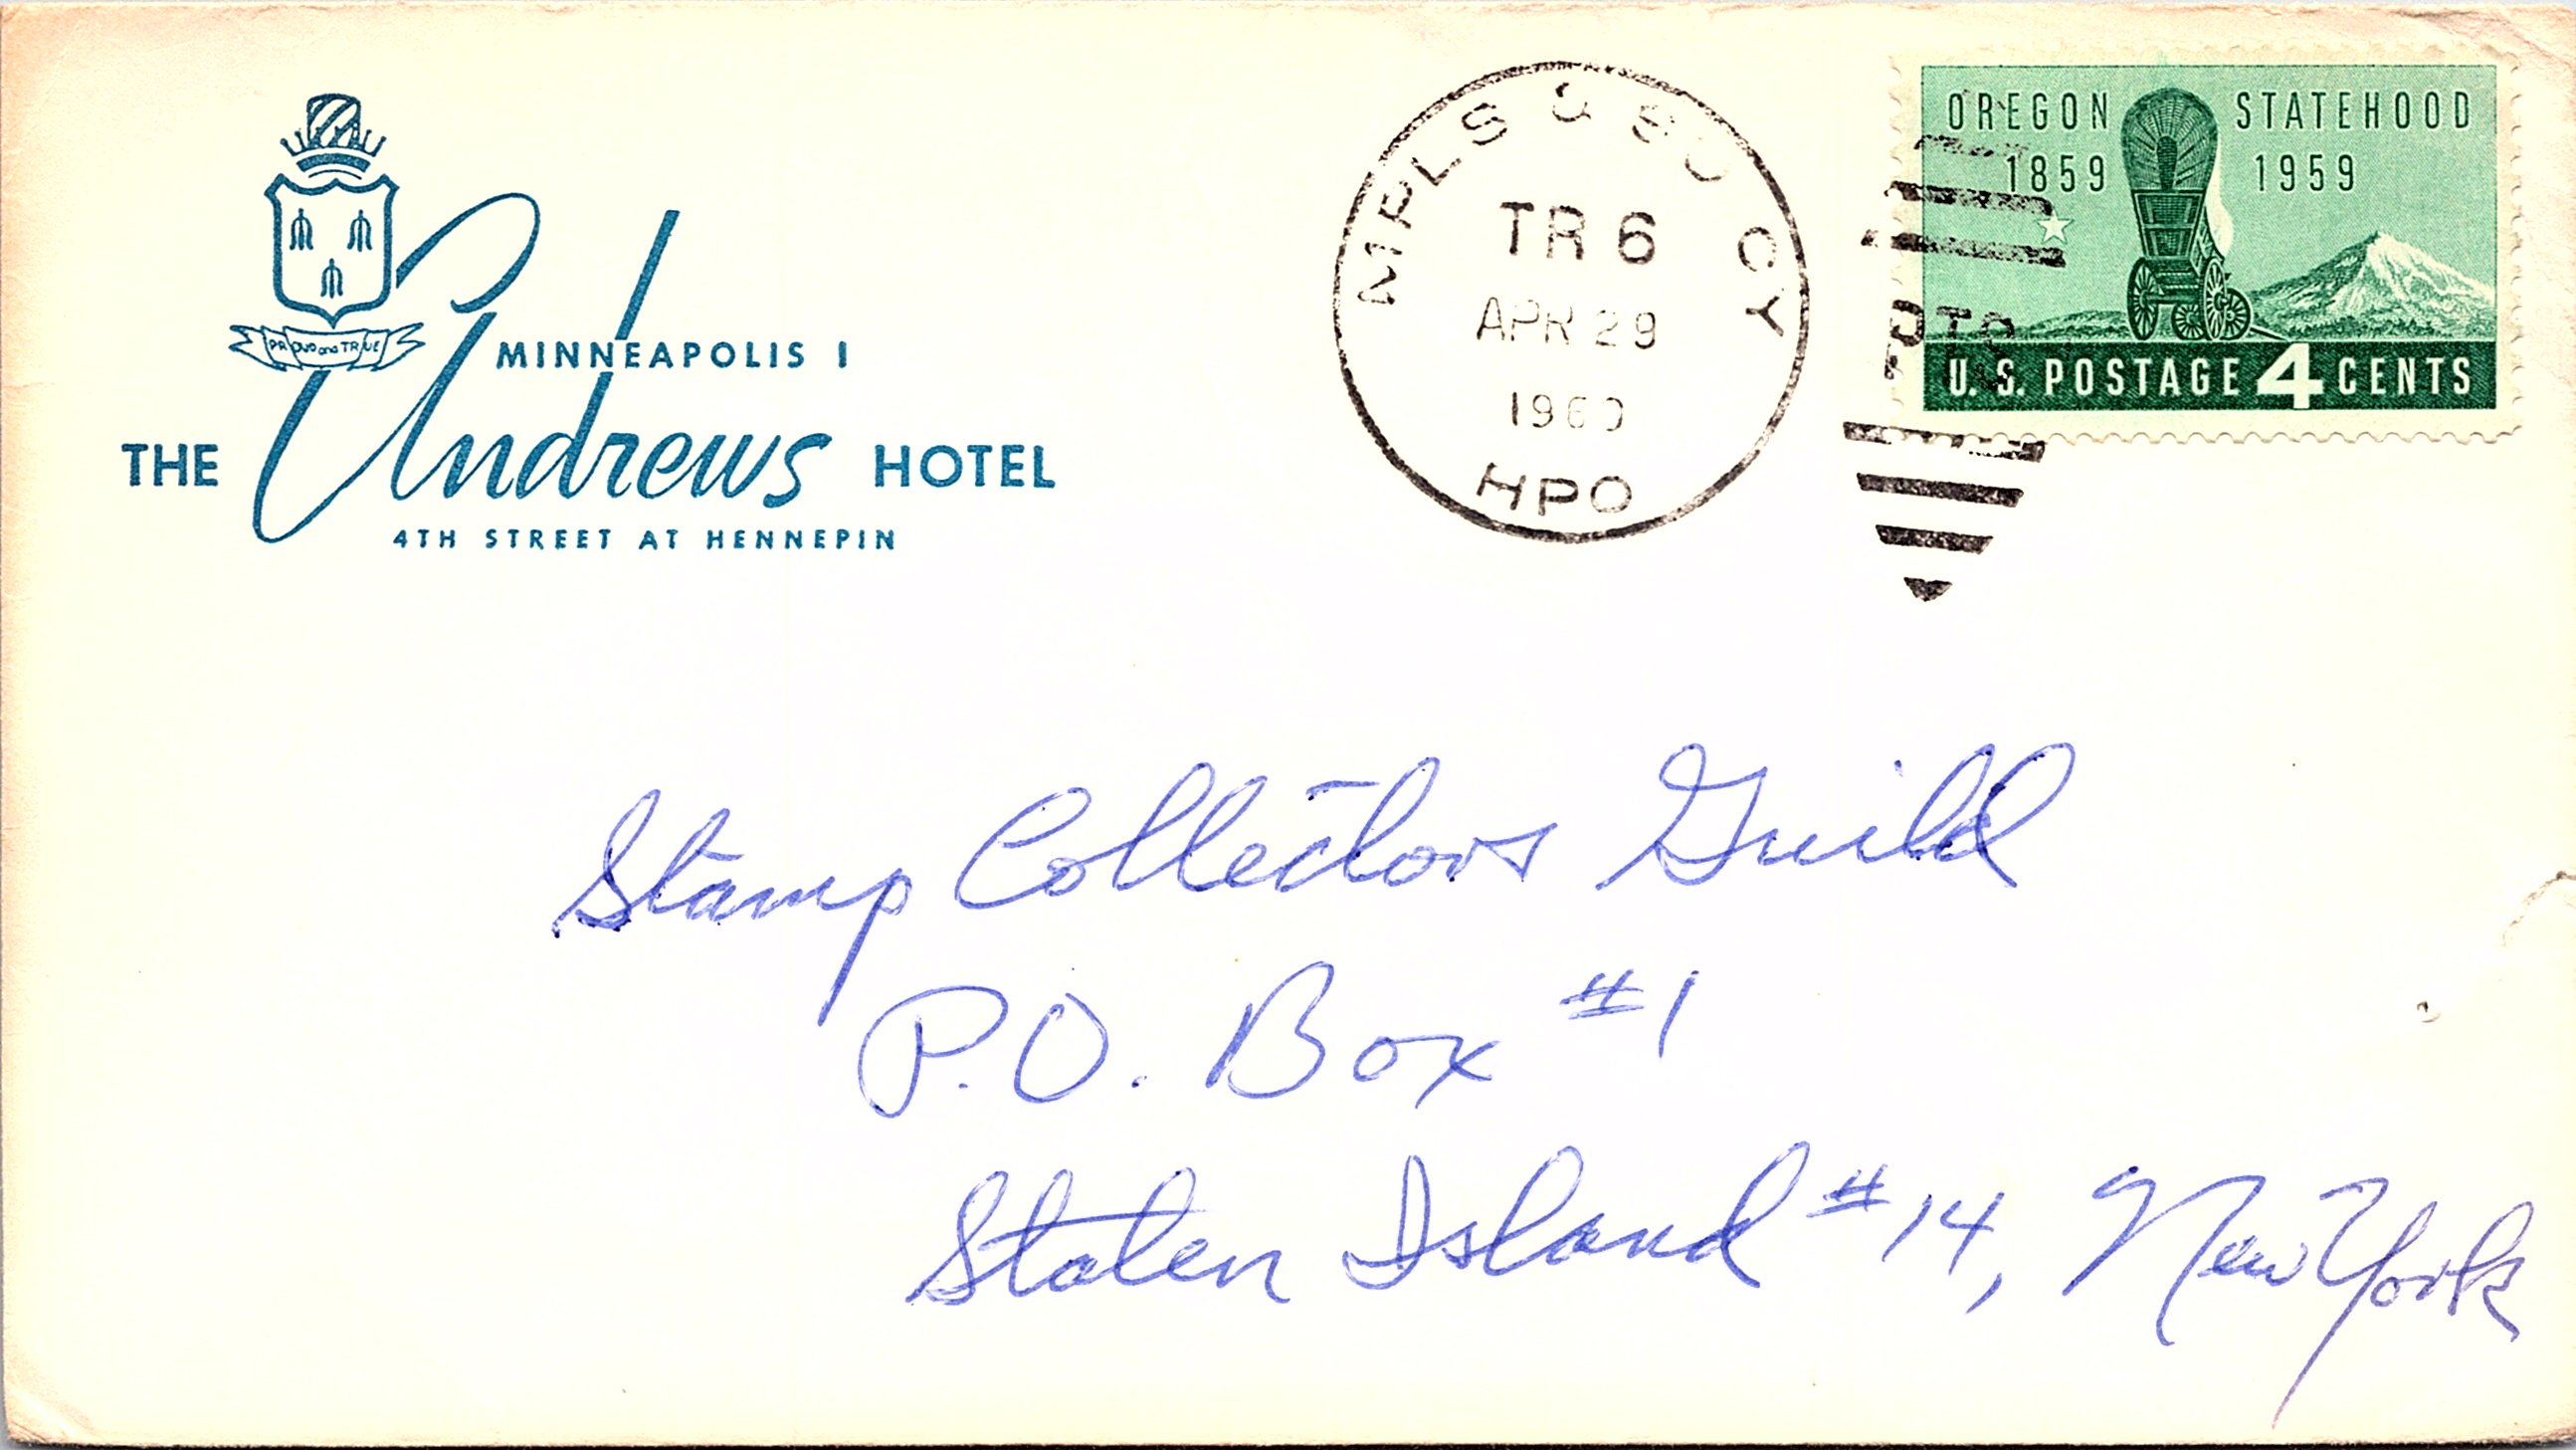 PROUD and TRUE
MINNEAPOLIS 1
THE Andrews HOTEL
4TH STREET AT HENNEPIN
MPLS & SU CY
TR 6
APR 29
1960
HPO
OREGON STATEHOOD
1859 1959
U.S. POSTAGE 4 CENTS
Stamp Collectors Guild
P.O. Box #1
Staten Island #14, New York